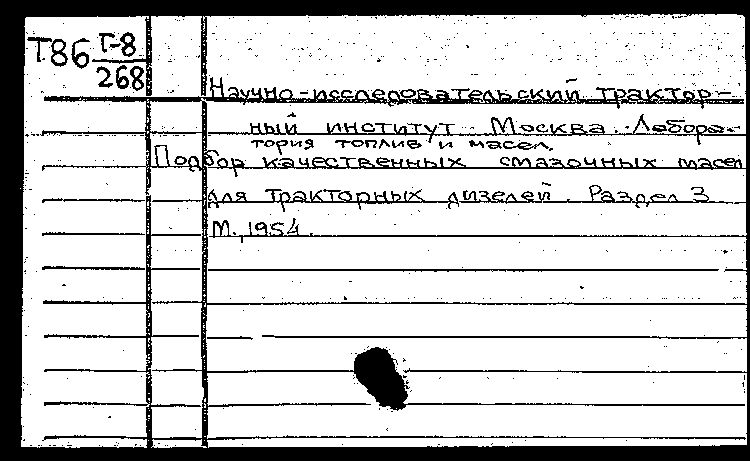 Т86 Т-8
268
Научно-исследовательский трактор-
ный институт. Москва. Лабора-
тория топлив и масел.
Подбор качественных смазочных масел
для тракторных дизелей. Раздел 3
М., 1954.